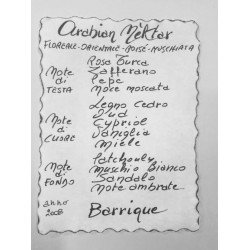 Arabian Nèktar
FLOREALE - ORIENTALE - NOISÉ - MUSCHIATA
Rosa Turca
Note di TESTA
Zafferano
Pepe
Noce moscata
Note di CUORE
Legno Cedro
Oud
Cypriol
Vaniglia
Miele
Note di FONDO
Patchouly
Muschio Bianco
Sandalo
Note ambrate
Anno 2008
Barrique